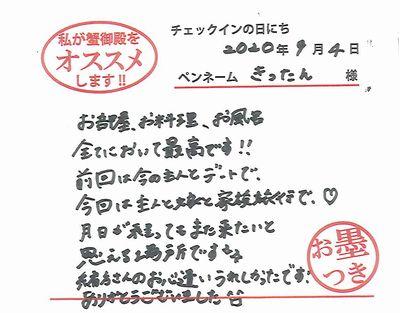 私が蟹御殿を
オススメ
します!!
チェックインの日にち
2020年9月4日
ペンネーム きったん 様
お部屋、お料理、お風呂
全てにおいて最高です!!
前回は今の主人とデートで、
今回は主人と娘と家族旅行で、♡
月日が経ってもまた来たいと
思える場所です
さんのお心遣いうれしかったです!
ありがとうございました
お墨
つき